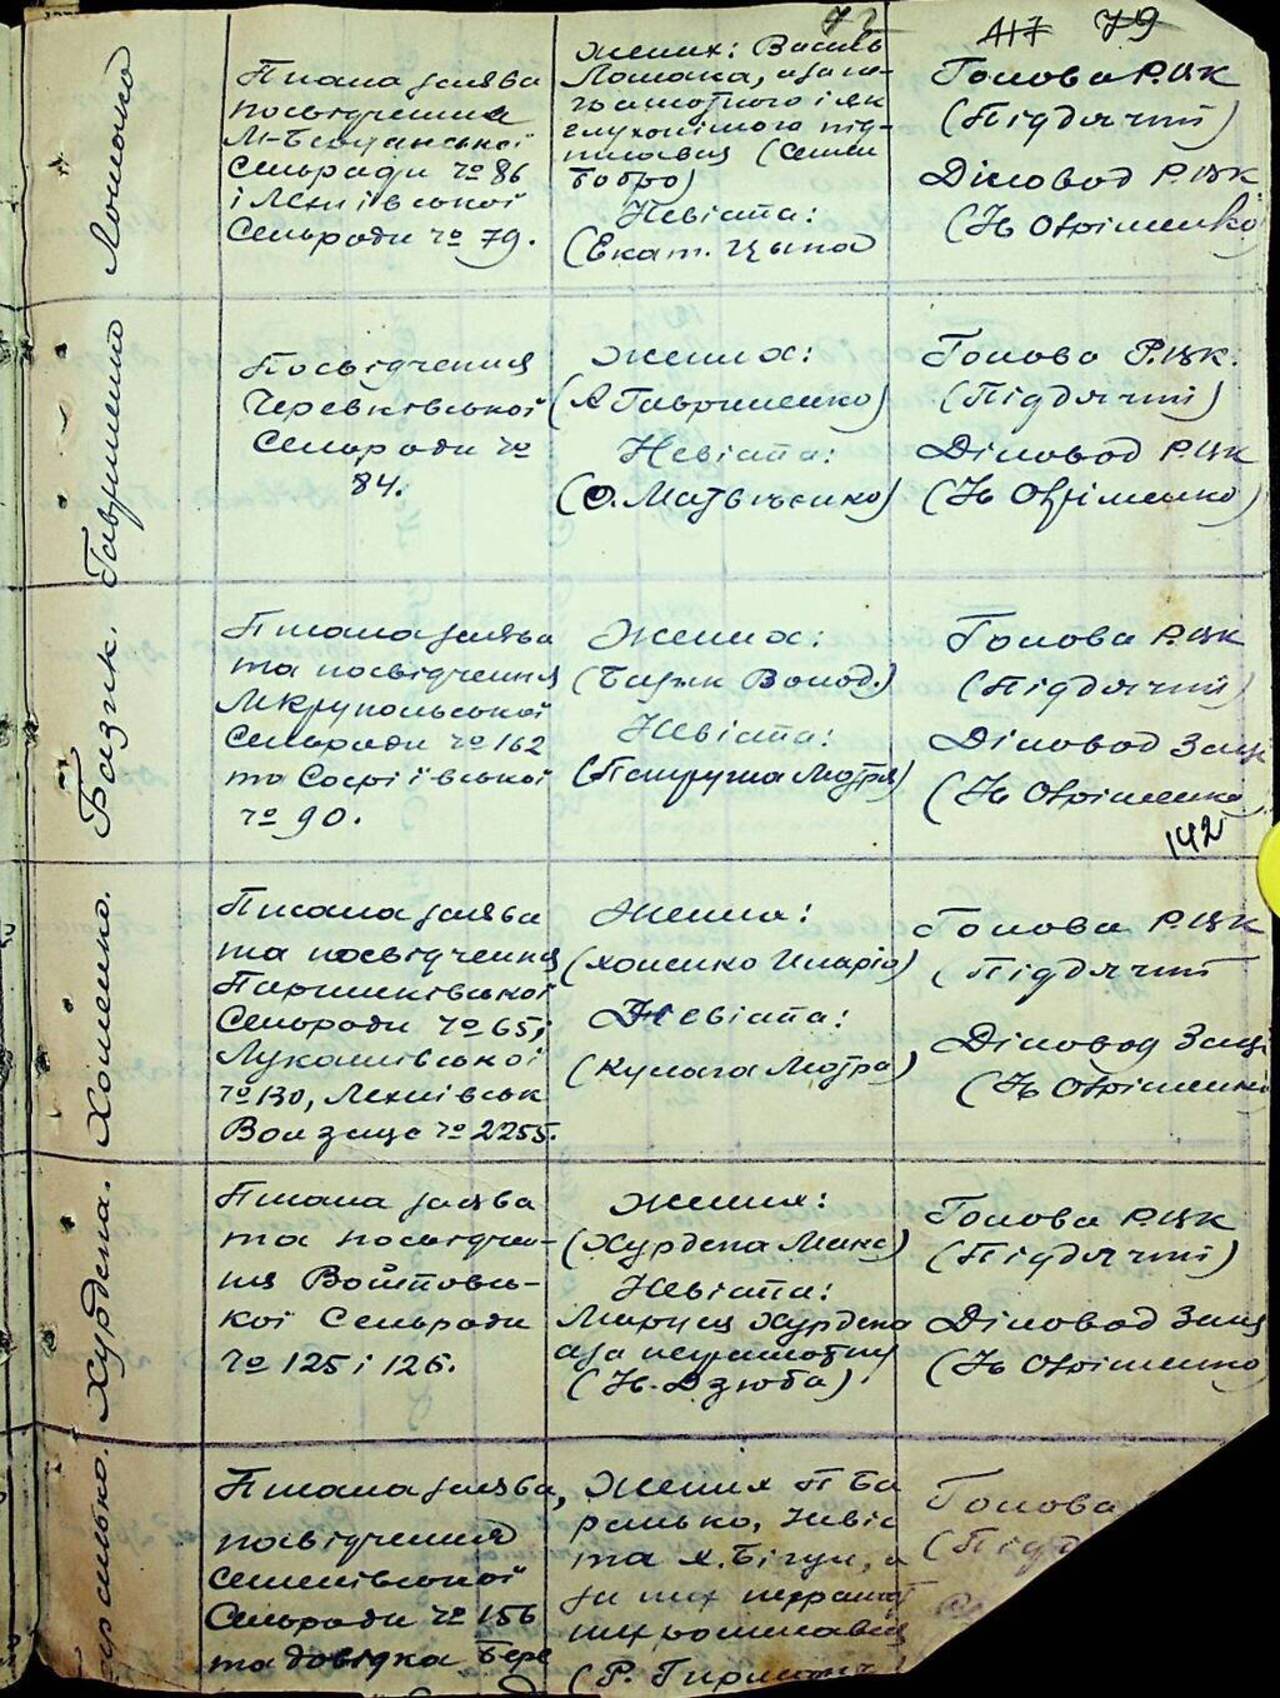 72
417 79
Ломака
Писана заява
посвідчення
М-Березанської
Сельради № 86
і Лехнівської
Сельради № 79.
Жених: Василь
Ломака, а за не-
грамотного і як
глухонімого під-
писавця (Семен
Бобро)
Невіста:
(Екат. Цьпа
Голова Р.ЦК
(Підд
Діловод Р.ЦК
Овріменко
Гавришенко
Посвідчення
Черевківської
Сельради №
84.
Жених:
(А Гавришенко)
Невіста:
(О. Матвієнко)
Голова Р.ЦК.
Діловод Р.ЦК
Овріменко)
Базик.
Писана заява
та посвідчення
МКрупольської
Сельради № 162
та Софіївської
№ 90.
Жених:
(Базик Волод.)
Невіста:
Мотря)
Голова Р.ЦК
Діловод Загс
Овріменко
142
Хоменко.
Писана заява
та посвідчення
Паришківської
Сельради № 65,
Лукашівської
№ 130, Лехнівськ
Вол загс № 2255.
Жених:
(Хоменко Иларіо)
Невіста:
(Кулага Мотра)
Голова Р.ЦК
Діловод Загс
Овріменко
Хурдепа.
Писана заява
та посвідчен-
ня Войтовсь-
кої Сельради
№ 125 і 126.
Жених:
(Хурдепа Макс)
Невіста:
Маруся Хурдепа
а за неграмотну
(Н. Дзюба)
Голова Р.ЦК
Діловод Загс
Овріменко
Баранько.
Писана заява,
посвідчення
Семенівської
Сельради № 156
та довідка Бере
Жених П Ба
ранько, Невіс
та Х. Бігун, а
за них неграмот
них росписавця
(Р.
Голова
(Підд